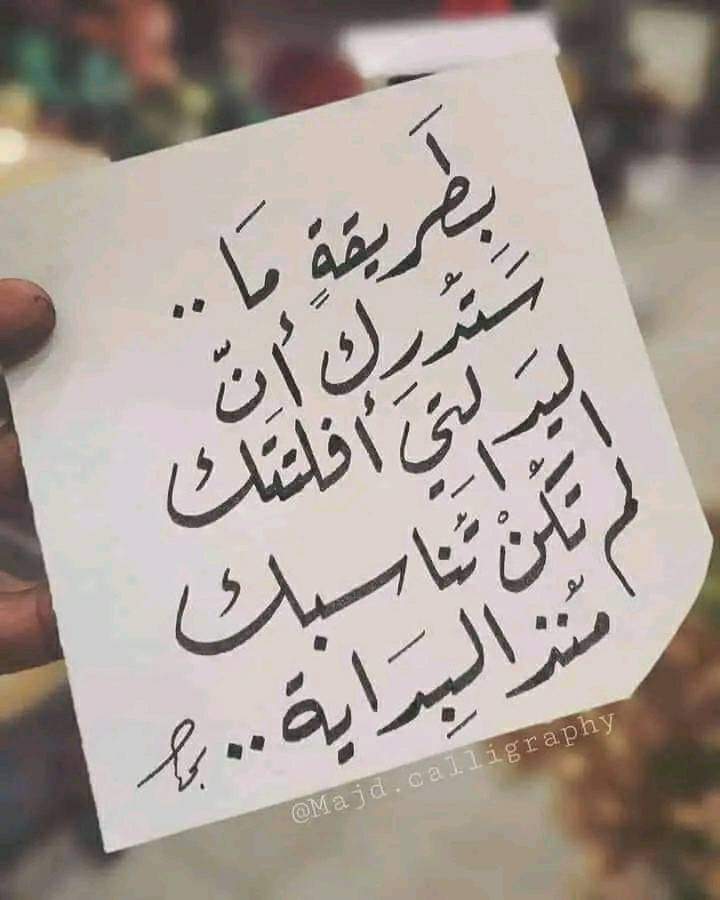 بِطَريقةٍ مَا ..
سَتُدرِك أنّ
اليَد التِي أفلتَتك
لم تَكُنْ تُناسبك
مُنذ البِدَاية ..
@Majd.calligraphy